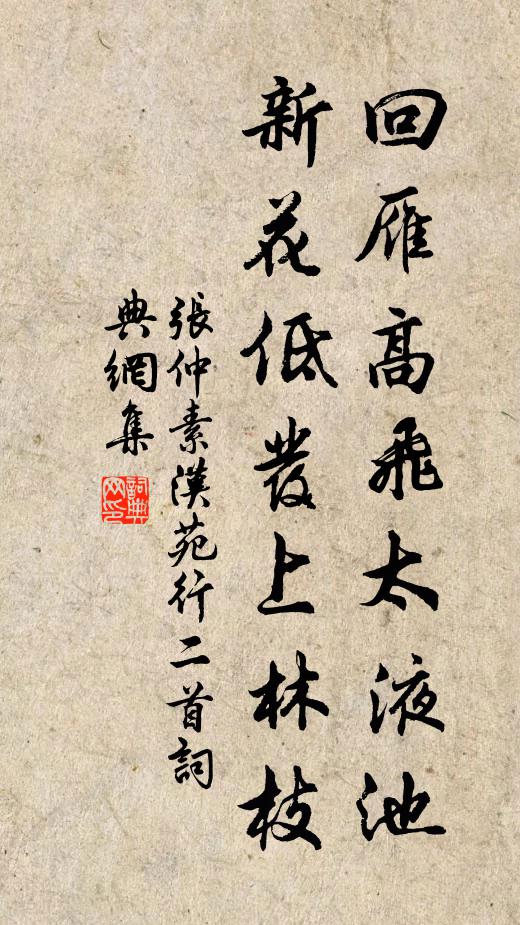 回雁高飛太液池
新花低發上林枝
張仲素漢苑行二首詞
典網集
詞典网印